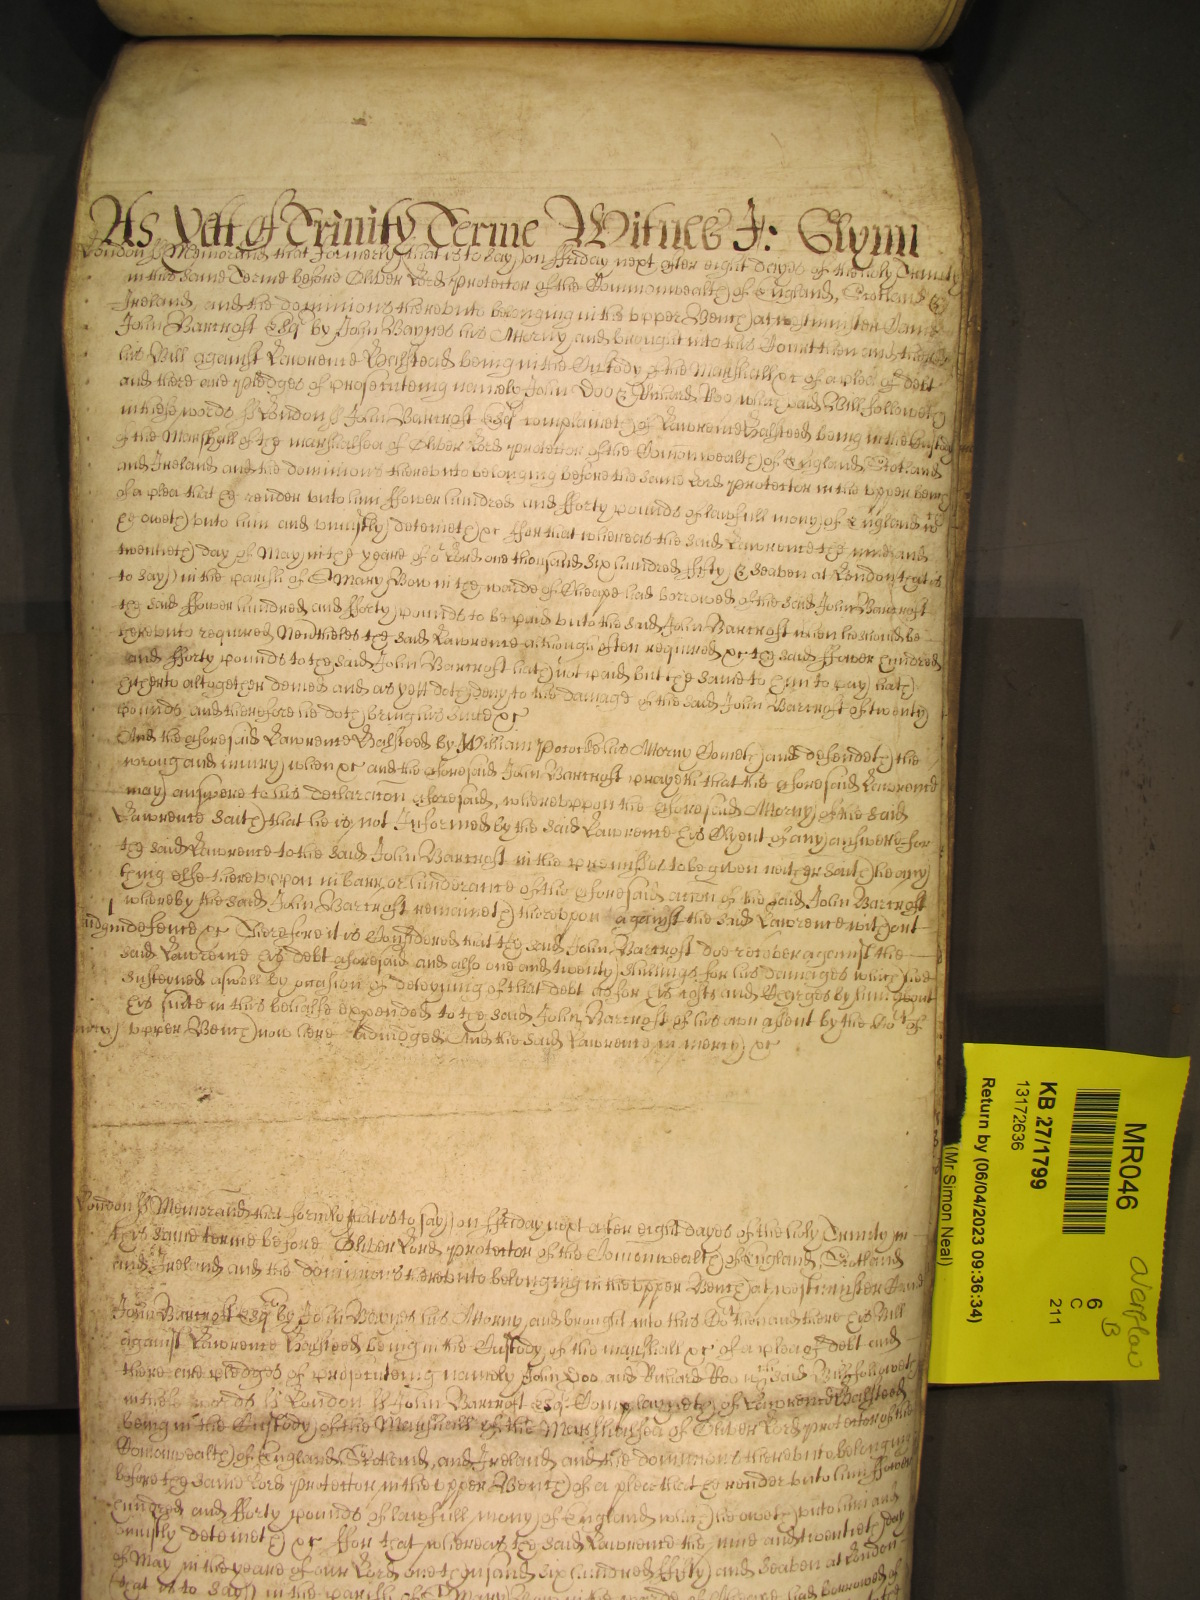 As Yett of Trinity Terme Witnes J: Glynn
London ss Memorand that formerly that is to say on ffriday next after eight dayes of the holy Trinity
in this same Terme before Oliver Lord Protector of the Comonwealth of England, Scotland &
Ireland and the dominions thereunto belonging in the upper Bench at westminster Came
John Barcroft Esqr by John Baynes his Attorny and brought into this Court then and there
his Bill against Lawrence Halsteed being in the Custody of the Marshall &c of a plea of debt
and there are pledges of prosecuteing namely John Doo & Richard Roo which said Bill followeth
in these words ss London ss John Barcroft Esqr complaineth of Lawrence Halsteed being in the Custody
of the Marshall of the marshalsea of Oliver Lord protector of the Comonwealth of England Scotland
and Ireland and the dominions thereunto belonging before the same Lord Protector in the upper bench
of a plea that he render unto him ffower hundred and fforty pounds of lawfull mony of England wch
he oweth unto him and uniustly deteineth &c ffor that whereas the said Lawrence the nine and
twentieth day of May in the yeare of or Lord one thousand six hundred ffifty & seaven at London that is
to say in the parish of St Mary Bow in the warde of Cheape had borrowed of the said John Barcroft
the said ffower hundred and fforty pounds to be paid unto the said John Barcroft when he should be
thereunto required Neverthelesse the said Lawrence although often required &c the said ffower hundred
and fforty pounds to the said John Barcroft hath not paid but the same to him to pay hath
hitherto altogether denied and as yett doth deny to the damage of the said John Barcroft of twenty
pounds and therefore he doth bring his suite &c
And the aforesaid Lawrence Halsteed by William Pocock his Attorny Cometh and defendeth the
wrong and iniury when &c and the aforesaid John Barcroft prayeth that the aforesaid Lawrence
may answere to his declaracion aforesaid, whereuppon the aforesaid Attorny of the said
Lawrence saith that he is not Informed by the said Lawrence his Clyent of any answere for
the said Lawrence to the said John Barcroft in the premisses to be given neither saith he any
thing else thereuppon in barr or hinderance of the aforesaid accon of the said John Barcroft
whereby the said John Barcroft remaineth thereuppon against the said Lawrence without
Iudgm defence &c Therefore it is Considered that the said John Barcroft doe recover against the
said Lawrence his debt aforesaid and also one and twenty shillings for his damages which he
susteyned aswell by occasion of deteyning of that debt as for his costs and Charges by him about
his suite in this behalfe expended to the said John Barcroft of his own assent by the Cort of
mercy upper Bench now here adiudged And the said Lawrence in mercy &c
London ss Memorand that formly that is to say on ffriday next after eight dayes of the holy Trinity in
this same terme before Oliver Lord protector of the Comonwealth of England, Scotland
and Ireland and the dominions thereunto belonging in the upper Bench at westminster Came
John Barcroft Esqr by John Baynes his Attorny, and brought into this Cort then and there his Bill
against Lawrence Halsteed being in the Custody of the marshall &c of a plea of debt and
there are pledges of prosecuteing namely John Doo and Richard Roo wch said Bill followeth
in these words ss London ss John Barcroft Esqr Complayneth of Lawrence Halsteed
being in the Custody of the Marshall of the Marshalsea of Oliver Lord protector of the
Comonwealth of England, Scotland, and Ireland and the dominions thereunto belonging
before the same Lord protector in the upper Bench of a plea that he render unto him ffower
hundred and fforty pounds of lawfull mony of England which he oweth unto him and
uniustly deteineth &c ffor that whereas the said Lawrence the nine and twentieth day
of May in the yeare of our Lord one thousand six hundred ffifty and seaven at London
that is to say in the parish of St Mary Bow in the had borrowed of
MR046
KB 27/1799
13172636
Return by (06/04/2023 09:36:34)
(Mr Simon Neal)
6
C
211
Overflow
B